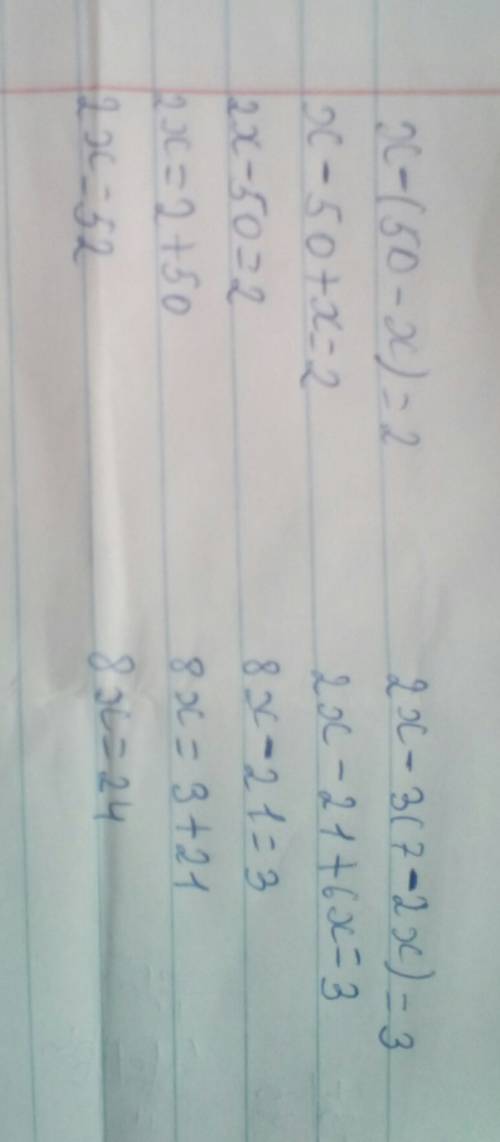 x-(50-x)=2
x-50+x=2
2x-50=2
2x=2+50
2x=52
2x-3(7-2x)=3
2x-21+6x=3
8x-21=3
8x=3+21
8x=24